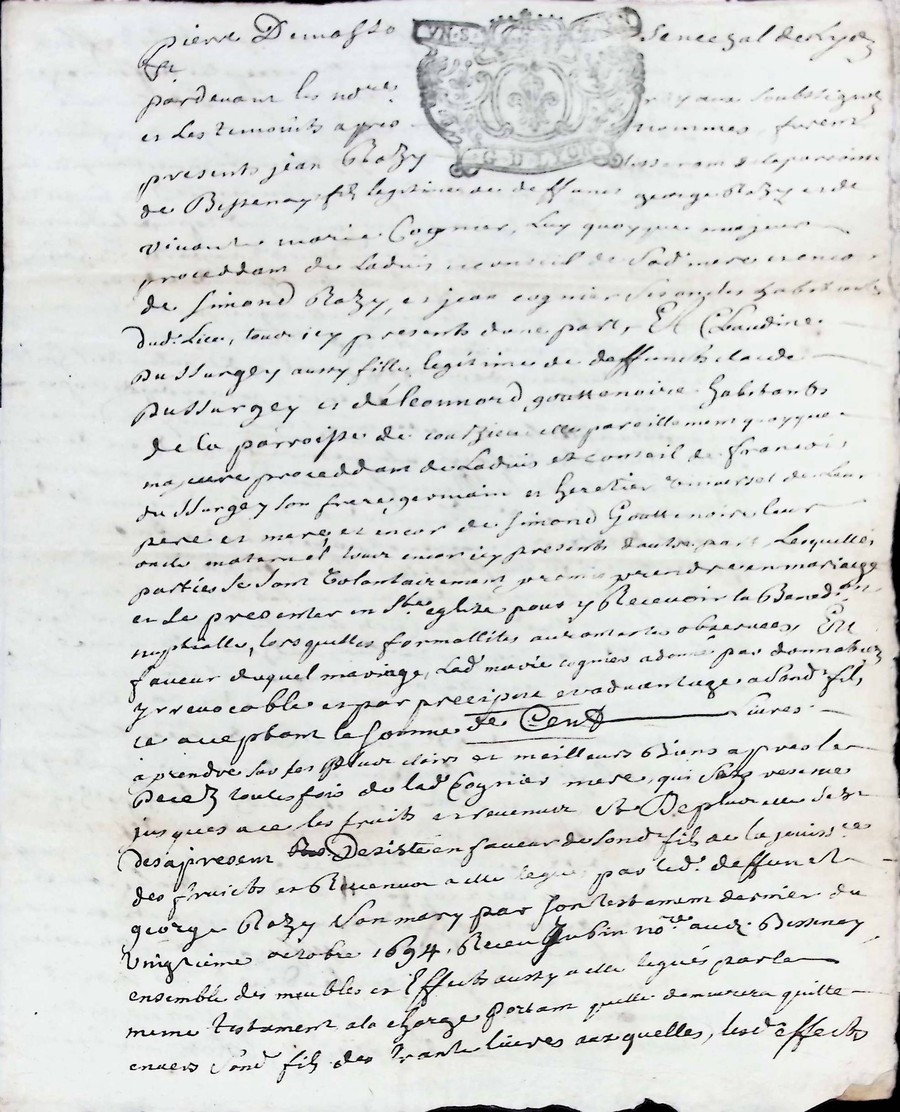 Pierre Demasso VN.S. Senechal de Lyon
pardevant les no.res royaux soubsignez
et les temoints apres nommes, furent
G D LYON
presents jean Razy tisserant de la paroisse
de Bessenay fils legitime de deffunct george Razy et de
vivante marie Cognier, Luy quoyque majeur
proceddant de Ladvis et conseil de Sad. mere et encor
de Simond Razy, et jean Cognier habitants
dud. Lieu, tous icy presents d'une part, Et Claudine
Dussurgey aussy fille legitime de deffuncts claude
Dussurgey et de leonnord gouttenoire habitants
de la parroisse de courzieu elle pareillement quoyque
majeure proceddant de Ladvis et Conseil de francois
Dussurgey son frere germain et heretier universel de Leur
pere et mere, et encor de Simond Gouttenoire leur
oncle maternel tous encor icy presents d'autre part Lesquelles
parties se sont Volontairement promis prendre en mariage
et se presenter en Ste eglize pour y Recevoir la Bened.on
nuptialle, lors quelles formallites auront estes observees, En
faveur duquel mariage, Lad. marie cognier a donné par donnation
yrrevocable et par precipue et advantage a Sond. fils
ce acceptant la somme de Cent Livres
a prendre sur ses plus clairs et meilleurs Biens apres le
decez toutesfois de lad. Cognier mere, qui sen reserve
jusques a ce les fruits et revenus, et De plus elle sest
des a present Desisté en faveur de Sond. fils de la jouiss.ce
des fruicts et Revenus a elle legué par led. deffunct
george Razy Son mary par Son testament dernier du
vingtième octobre 1694. Receu Jubin no.re aud. Bessenay
ensemble des meubles et Effects aussy a elle legués par le
meme testament a la charge Portant quelle demeurera quitte
envers Sond. fils des trante livres auxquelles, lesd. effects